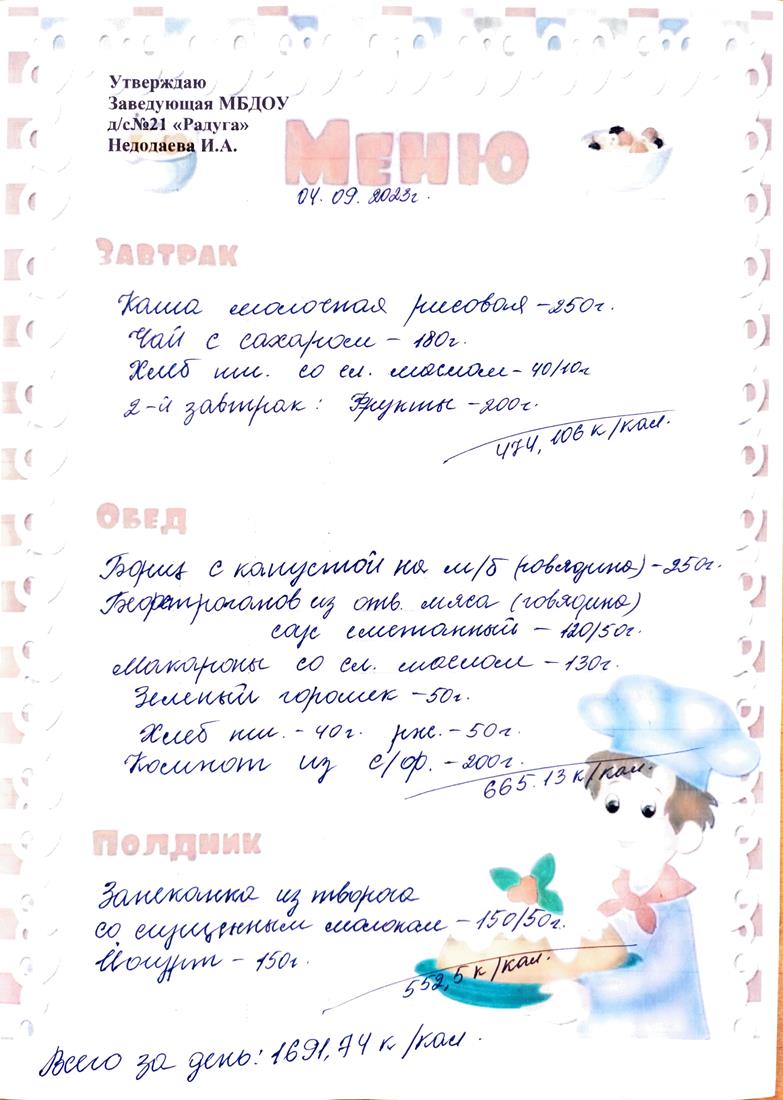 Утверждаю
Заведующая МБДОУ
д/с№21 «Радуга»
Недодаева И.А.
Меню
04. 09. 2023г.
Завтрак
Каша молочная рисовая – 250г.
Чай с сахаром – 180г.
Хлеб пш. со сл. маслом – 40/10г
2-й завтрак: Фрукты – 200г.
474, 106 к/кал.
Обед
Борщ с капустой на м/б (говядина) – 250г.
Бефстроганов из отв. мяса (говядина)
соус сметанный – 120/50г.
Макароны со сл. маслом – 130г.
Зеленый горошек – 50г.
Хлеб пш. – 40г. рж. – 50г.
Компот из с/ф. – 200г.
665.13 к/кал.
Полдник
Запеканка из творога
со сгущенным молоком – 150/50г.
Йогурт – 150г.
552,5 к/кал.
Всего за день: 1691,74 к/кал.